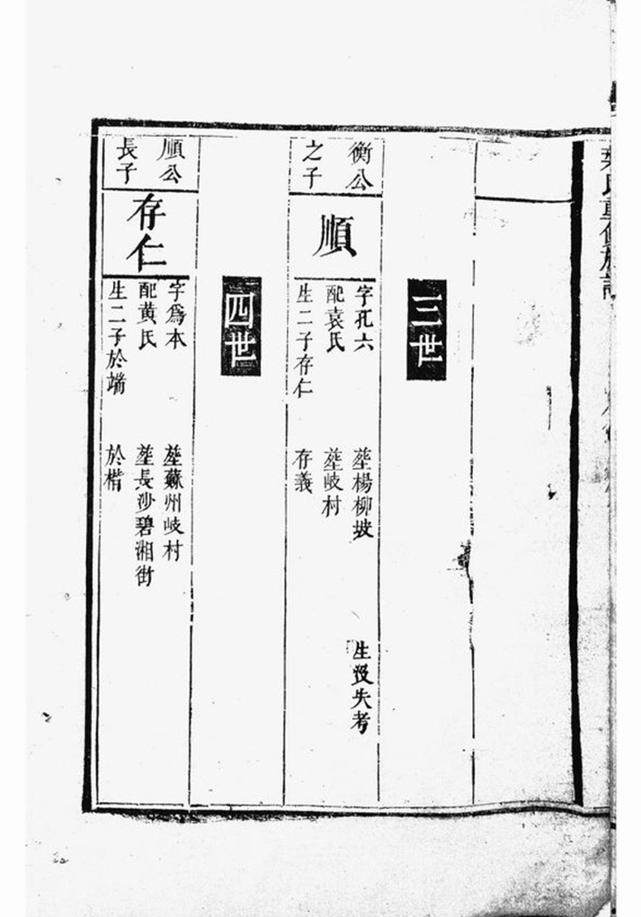 三世
衡公
之子
順
字孔六 塟楊柳坡 生歿失考
配袁氏 塟岐村
生二子存仁 存義
四世
順公
長子
存仁
字爲本 塟蘇州岐村
配黄氏 塟長沙碧湘街
生二子於端 於楷